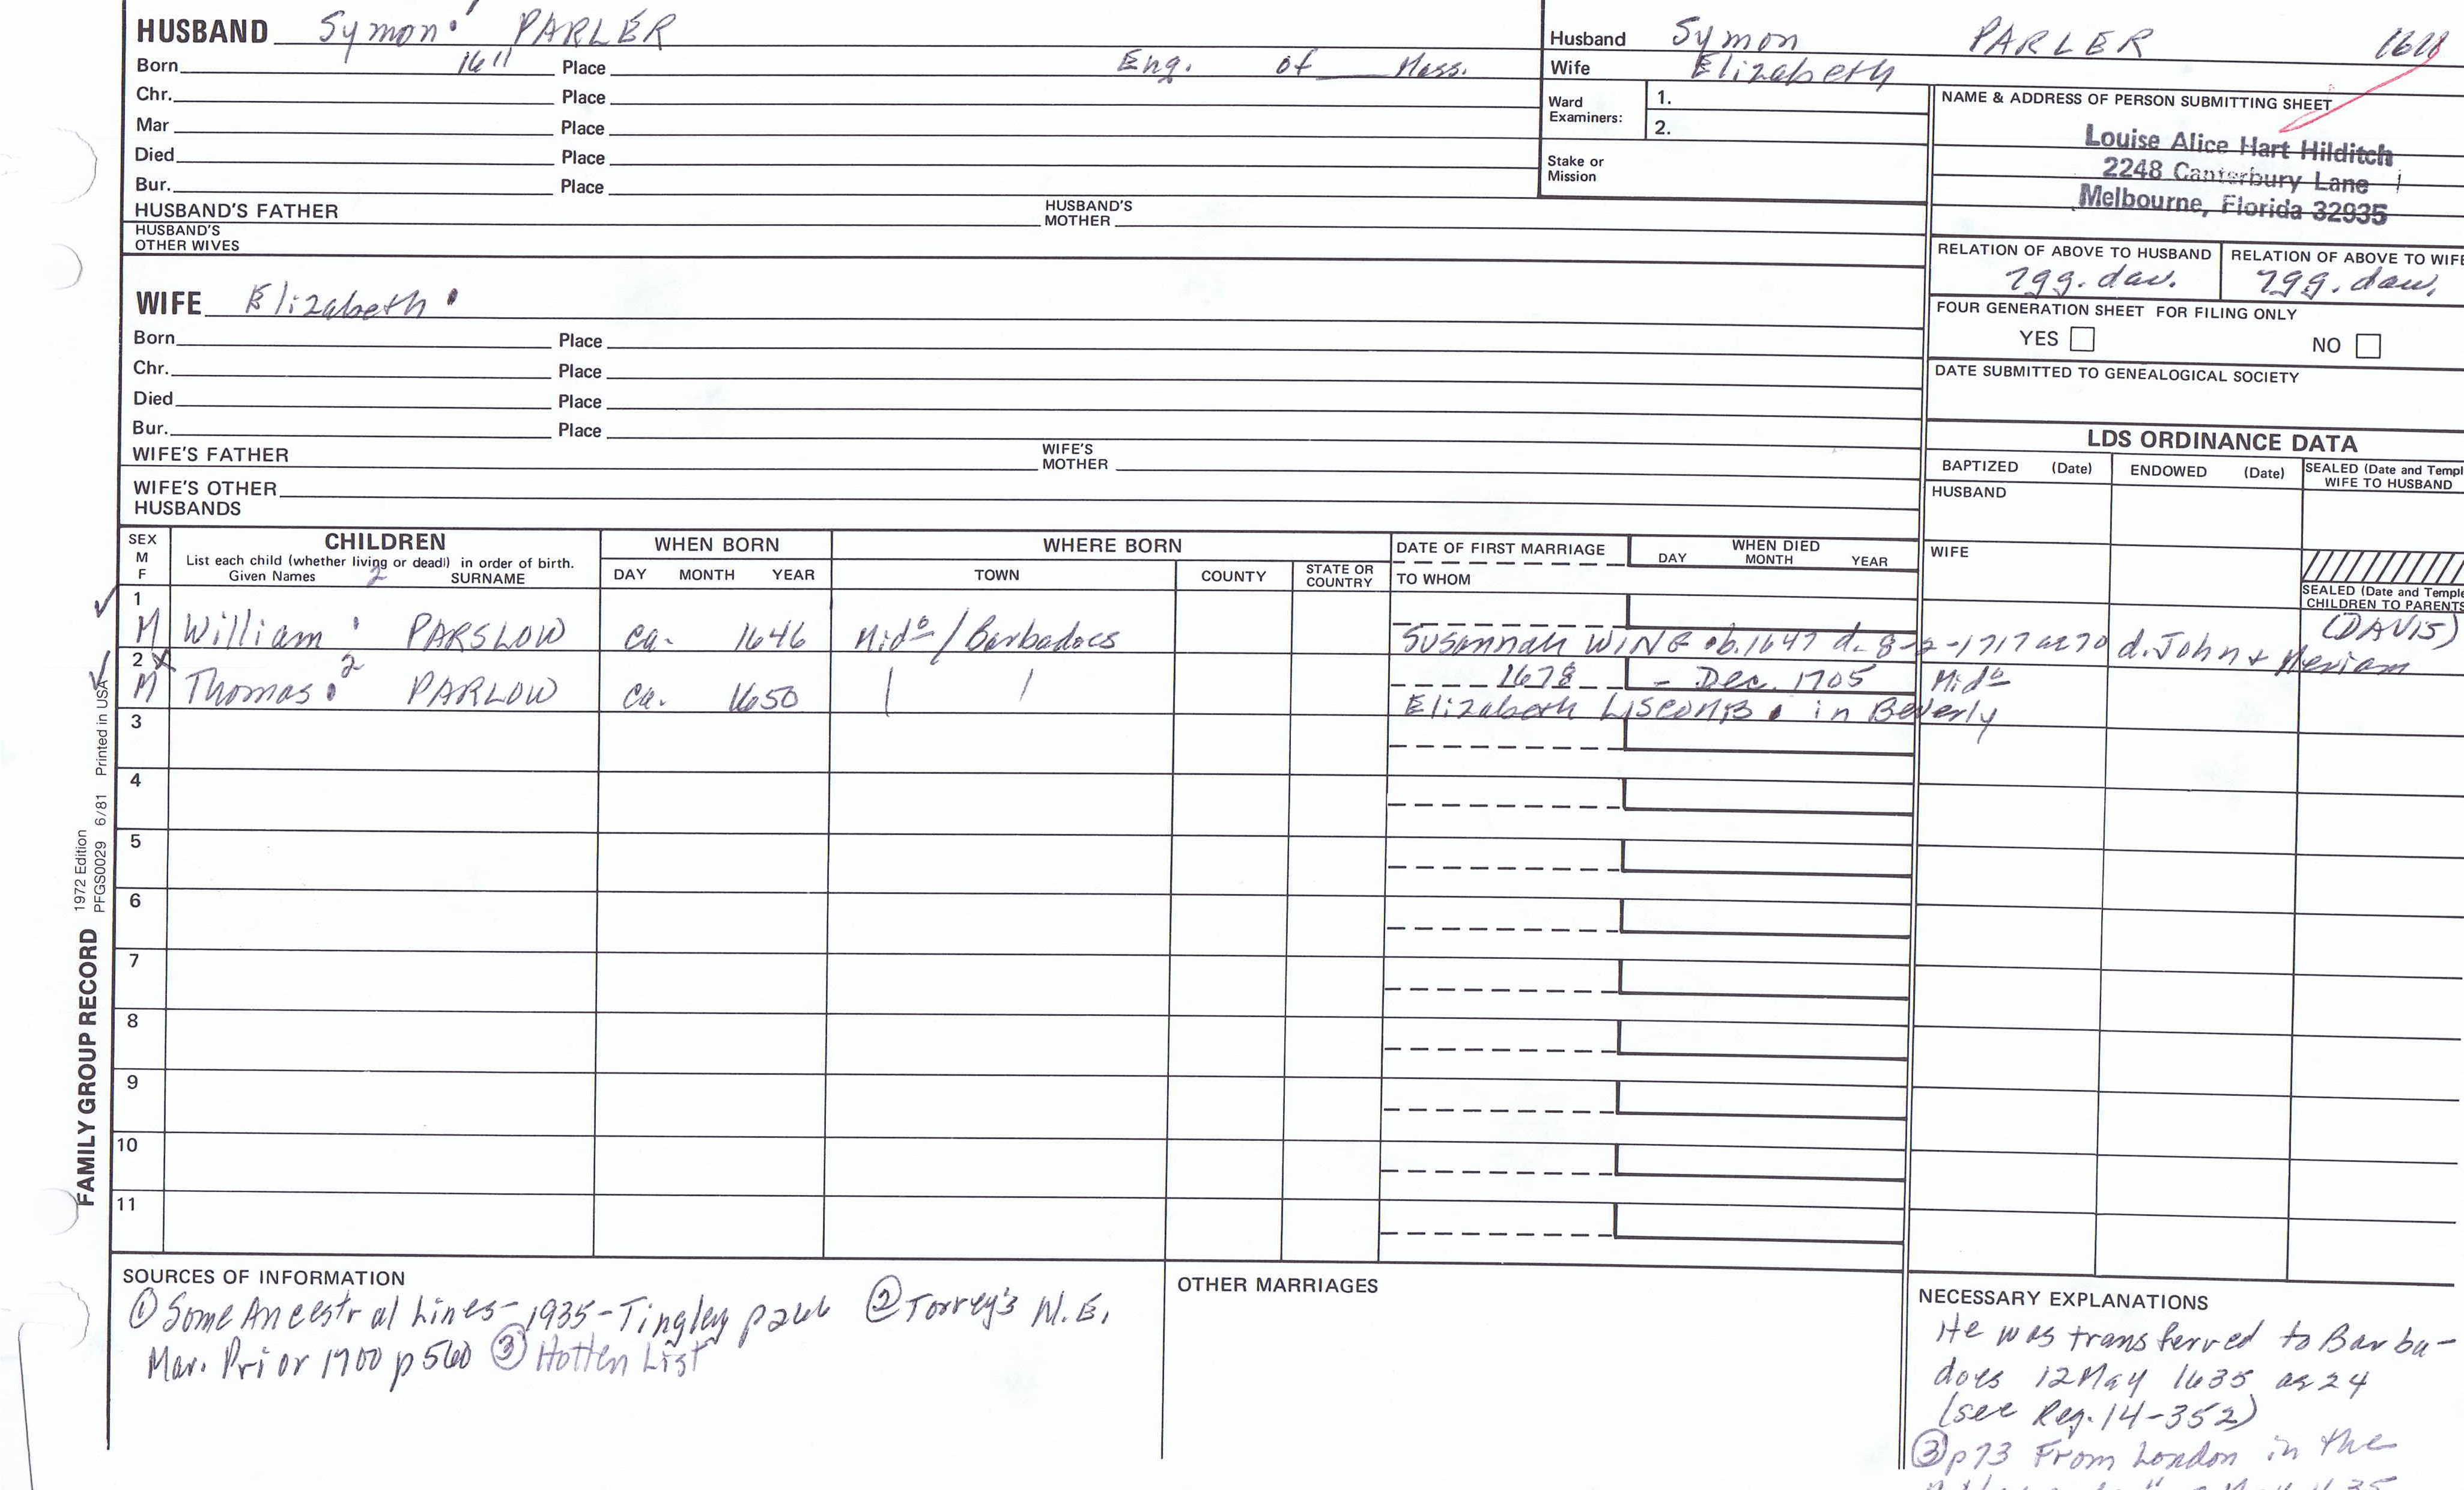 HUSBAND Symon PARLER
Born 1611 Place Eng. of Mass.
Chr. Place
Mar Place
Died Place
Bur. Place
HUSBAND'S FATHER HUSBAND'S MOTHER
HUSBAND'S OTHER WIVES
Husband Symon PARLER 1611
Wife Elizabeth
Ward Examiners: 1.
2.
Stake or Mission
NAME & ADDRESS OF PERSON SUBMITTING SHEET
Louise Alice Hart Hilditch
2248 Canterbury Lane
Melbourne, Florida 32935
RELATION OF ABOVE TO HUSBAND RELATION OF ABOVE TO WIFE
7gg. dau. 7gg. dau.
FOUR GENERATION SHEET FOR FILING ONLY
YES NO
DATE SUBMITTED TO GENEALOGICAL SOCIETY
WIFE Elizabeth
Born Place
Chr. Place
Died Place
Bur. Place
WIFE'S FATHER WIFE'S MOTHER
WIFE'S OTHER HUSBANDS
LDS ORDINANCE DATA
BAPTIZED (Date) ENDOWED (Date) SEALED (Date and Templ
WIFE TO HUSBAND
HUSBAND
WIFE
SEALED (Date and Temple
CHILDREN TO PARENTS
SEX M F
CHILDREN
List each child (whether living or dead) in order of birth.
Given Names SURNAME
WHEN BORN
DAY MONTH YEAR
WHERE BORN
TOWN COUNTY STATE OR COUNTRY
DATE OF FIRST MARRIAGE
TO WHOM
WHEN DIED
DAY MONTH YEAR
1 M William 2 PARSLOW ca. 1646 Mido / Barbadoes
Susannah WING b.1647 d. 8-2-1717 ae 70 d. John & Meriam (DAVIS)
2 X M Thomas 2 PARLOW ca. 1650
1678 - Dec. 1705 Mido
Elizabeth LISCOMB in Beverly
3
4
5
6
7
8
9
10
11
FAMILY GROUP RECORD
1972 Edition
PFGS0029 6/81 Printed in USA
SOURCES OF INFORMATION
① Some Ancestral Lines - 1935 - Tingley p 266 ② Torrey's N.E.
Mar. Prior 1700 p 560 ③ Hotten List
OTHER MARRIAGES
NECESSARY EXPLANATIONS
He was transferred to Barba-
does 12 May 1635 ae 24
(see Reg. 14-352)
③ p73 From London in the